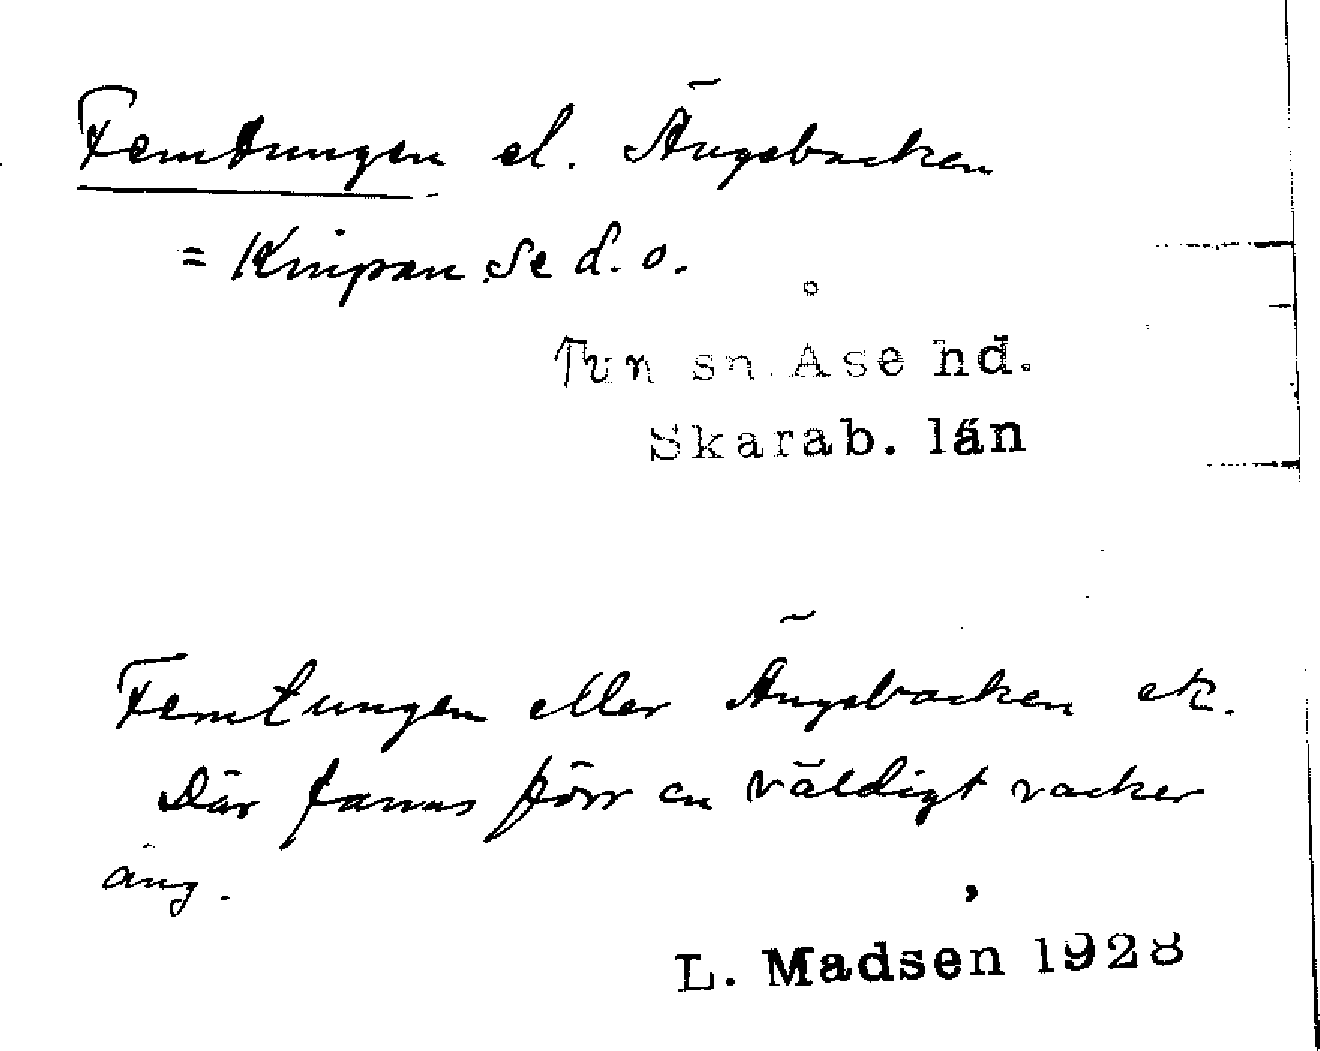 Femtungen el. Ängsbacken
= Knipan se d. o.
Tun sn. Åse hd.
Skarab. län
Femtungen eller Ängsbacken etc.
Där fanns förr en väldigt vacker
äng.
L. Madsen 1928